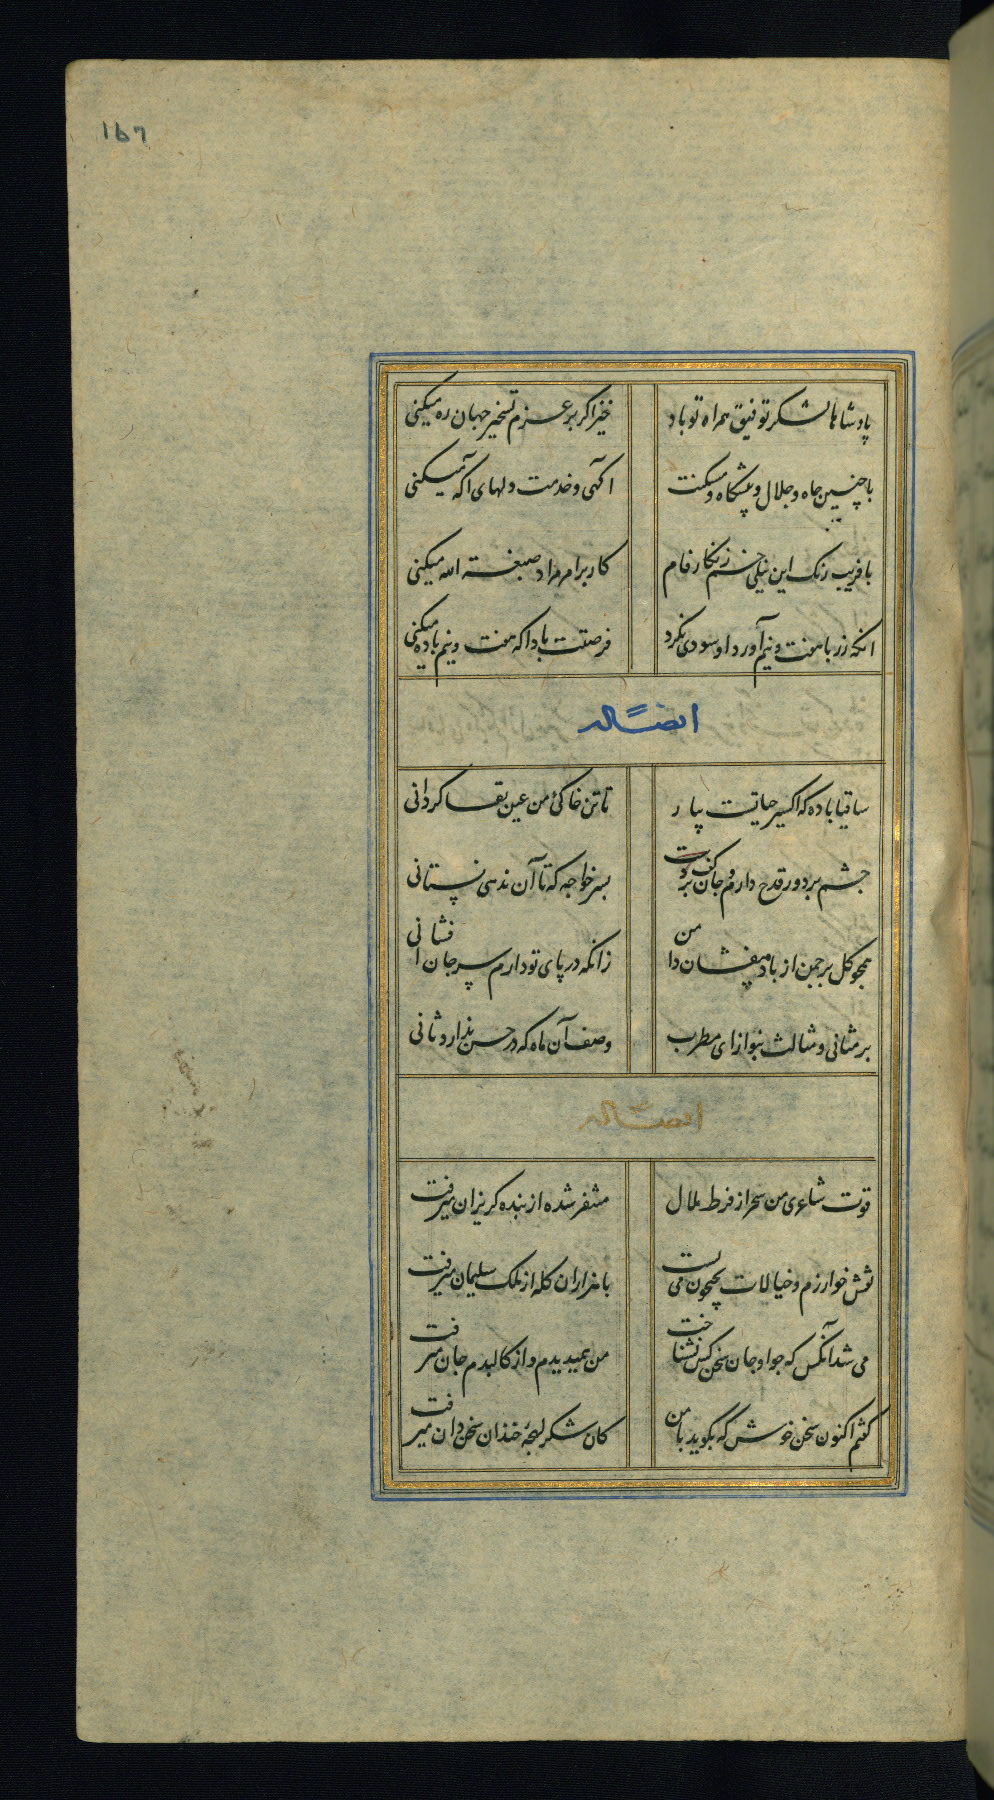 167
پادشاها لشکر توفیق همراه تو باد
خیز اکر بر عزم تسخیر جهان ره میکنی
با چنین جاه و جلال و پیشکاه و مسکنت
آکهی و خدمت دلهای آکه میکنی
با فریب رنک این نیلی خم زنکار فام
کار بر امر مراد صبغة الله میکنی
انکه زر با هفت و نیم آورد او سودی نکرد
فرصتت بادا که هفت و نیم با ده میکنی
ایضاً له
ساقیا باده که اکسیر حیاتیست بیار
تا تن خاکئ من عین بقا کردانی
چشم بر دور قدح دارم و جان بر کف دست
بسر خواجه که تا آن ندهی نستانی
همچو کل بر چمن از باد میفشان دامن
زانکه در پای تو دارم سر جان افشانی
بر مثانی و مثالث بنواز ای مطرب
وصف آن ماه که در حسن ندارد ثانی
ایضاً له
قوت شاعری من سحر از فرط ملال
متنفر شده از بنده کریزان میرفت
نقش خوارزم و خیالات جیحون می بست
با هزاران کله از ملک سلیمان میرفت
می شد آنکس که جز او جان سخن کس نشناخت
من همیدیدم و از کالبدم جان میرفت
کفتم اکنون سخن خوش که بکوید با من
کان شکر لهجهٔ خندان سخن دان میرفت